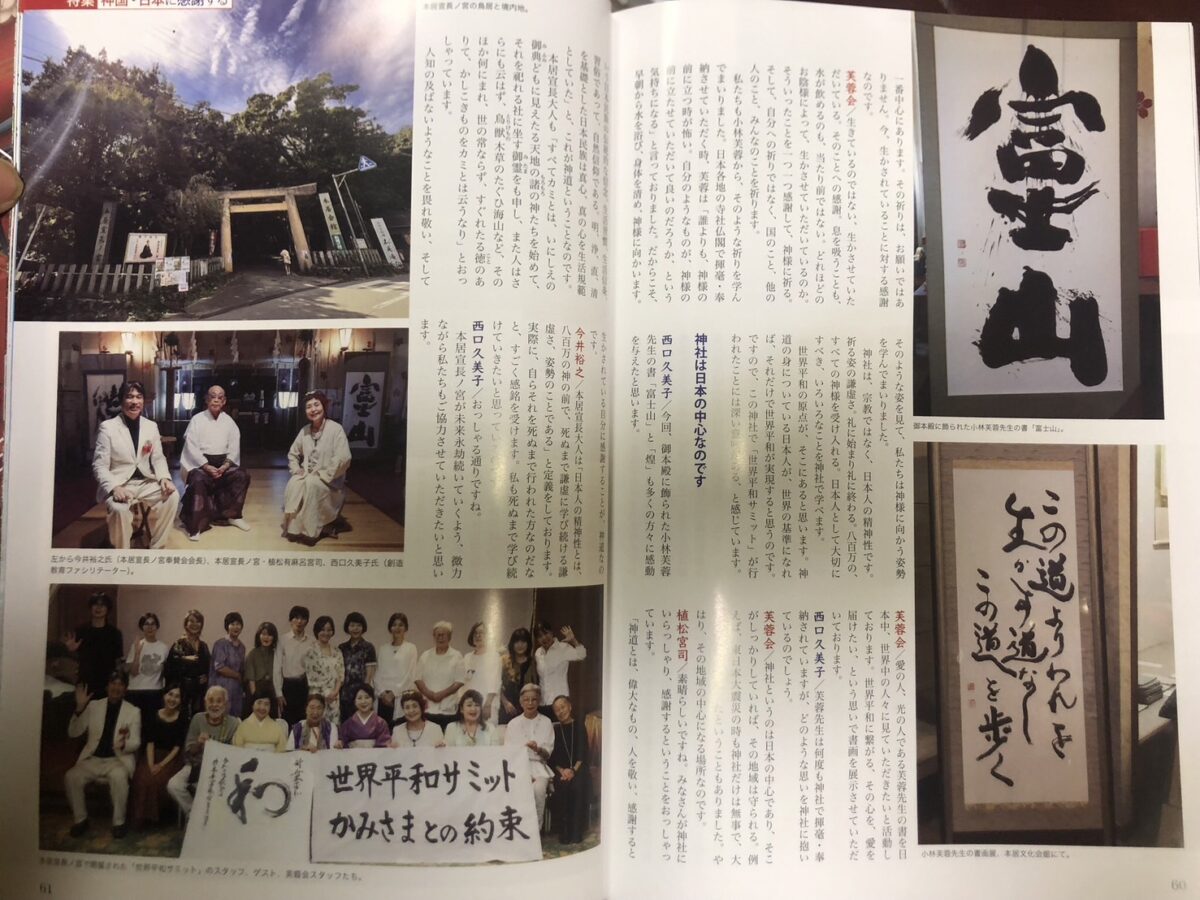 富士山
御本殿に飾られた小林芙蓉先生の書「富士山」。
この道よりわれを
生かす道なし
この道を歩く
小林芙蓉先生の書画展、本居文化会館にて。
一番中心にあります。その祈りは、お願いではあ
りません。今、生かされていることに対する感謝
なのです。
芙蓉会／生きているのではない、生かさせていた
だいている。そのことへの感謝。息を吸うことも、
水が飲めるのも、当たり前ではない。どれほどの
お陰様によって、生かさせていただいているのか。
そういったことを一つ一つ感謝して、神様に祈る。
そして、自分への祈りではなく、国のこと、他の
人のこと、みんなのことを祈ります。
私たちも小林芙蓉から、そのような祈りを学ん
でまいりました。日本各地の寺社仏閣で揮毫・奉
納させていただく時、芙蓉は「誰よりも、神様の
前に立つ時が怖い。自分のようなものが、神様の
前に立たせていただいて良いのだろうか、という
気持ちになる」と言っておりました。だからこそ、
早朝から水を浴び、身体を清め、神様に向かいます。
そのような姿を見て、私たちは神様に向かう姿勢
を学んでまいりました。
神社は、宗教ではなく、日本人の精神性です。
祈る姿の謙虚さ。礼に始まり礼に終わる。八百万の、
すべての神様を受け入れる。日本人として大切に
すべき、いろいろなことを神社で学べます。
世界平和の原点が、そこにあると思います。神
道の身についている日本人が、世界の基準になれ
ば、それだけで世界平和が実現すると思うのです。
ですので、この神社で「世界平和サミット」が行
われたことには深い意 る、と感じています。
神社は日本の中心なのです
西口久美子／今回、御本殿に飾られた小林芙蓉
先生の書「富士山」と「煌」も多くの方々に感動
を与えたと思います。
芙蓉会／愛の人、光の人である芙蓉先生の書を日
本中、世界中の人々に見ていただきたいと活動し
ております。世界平和に繋がる、その心を、愛を
届けたい、という思いで書画を展示させていただ
いております。
西口久美子／芙蓉先生は何度も神社で揮毫・奉
納されていますが、どのような思いを神社に抱い
ているのでしょう。
芙蓉会／神社というのは日本の中心であり、そこ
がしっかりしていれば、その地域は守られる。例
えば、東日本大震災の時も神社だけは無事で、大
ということもありました。や
はり、その地域の中心になる場所なのです。
植松宮司／素晴らしいですね。みなさんが神社に
いらっしゃり、感謝するということをおっしゃっ
ています。
「神道とは、偉大なもの、人を敬い、感謝すると
60
特集 神国・日本に感謝する
本居宣長ノ宮の鳥居と境内地。
習俗であって、自然信仰である。明、浄、直、清
を基礎とした日本民族は真心、真の心を生活規範
としていた」と、これが神道ということなのです。
本居宣長大人も「すべてカミとは、いにしえの
御典どもに見えたる天地の諸の神たちを始めて、
それを祀れる社に坐す御霊をも申し、また人はさ
らにも云はず、鳥獣木草のたぐひ海山など、その
ほか何にまれ、世の常ならず、すぐれたる徳のあ
りて、かしこきものをカミとは云うなり」とおっ
しゃっています。
人知の及ばないようなことを畏れ敬い、そして
生かされている自分に感謝することが、神道なの
です。
今井裕之／本居宣長大人は「日本人の精神性とは、
八百万の神の前で、死ぬまで謙虚に学び続ける謙
虚さ、姿勢のことである」と定義をしております。
実際に、自らそれを死ぬまで行われた方なのだな
と、すごく感銘を受けます。私も死ぬまで学び続
けていきたいと思ってい
西口久美子／おっしゃる通りですね。
本居宣長ノ宮が未来永劫続いていくよう、微力
ながら私たちもご協力させていただきたいと思い
ます。
富士山
左から今井裕之氏（本居宣長ノ宮奉賛会会長）、本居宣長ノ宮・植松有麻呂宮司、西口久美子氏（創造
教育ファシリテーター）。
和
世界平和サミット
かみさまとの約束
本居宣長ノ宮で開催された「世界平和サミット」のスタッフ、ゲスト、芙蓉会スタッフたち。
61